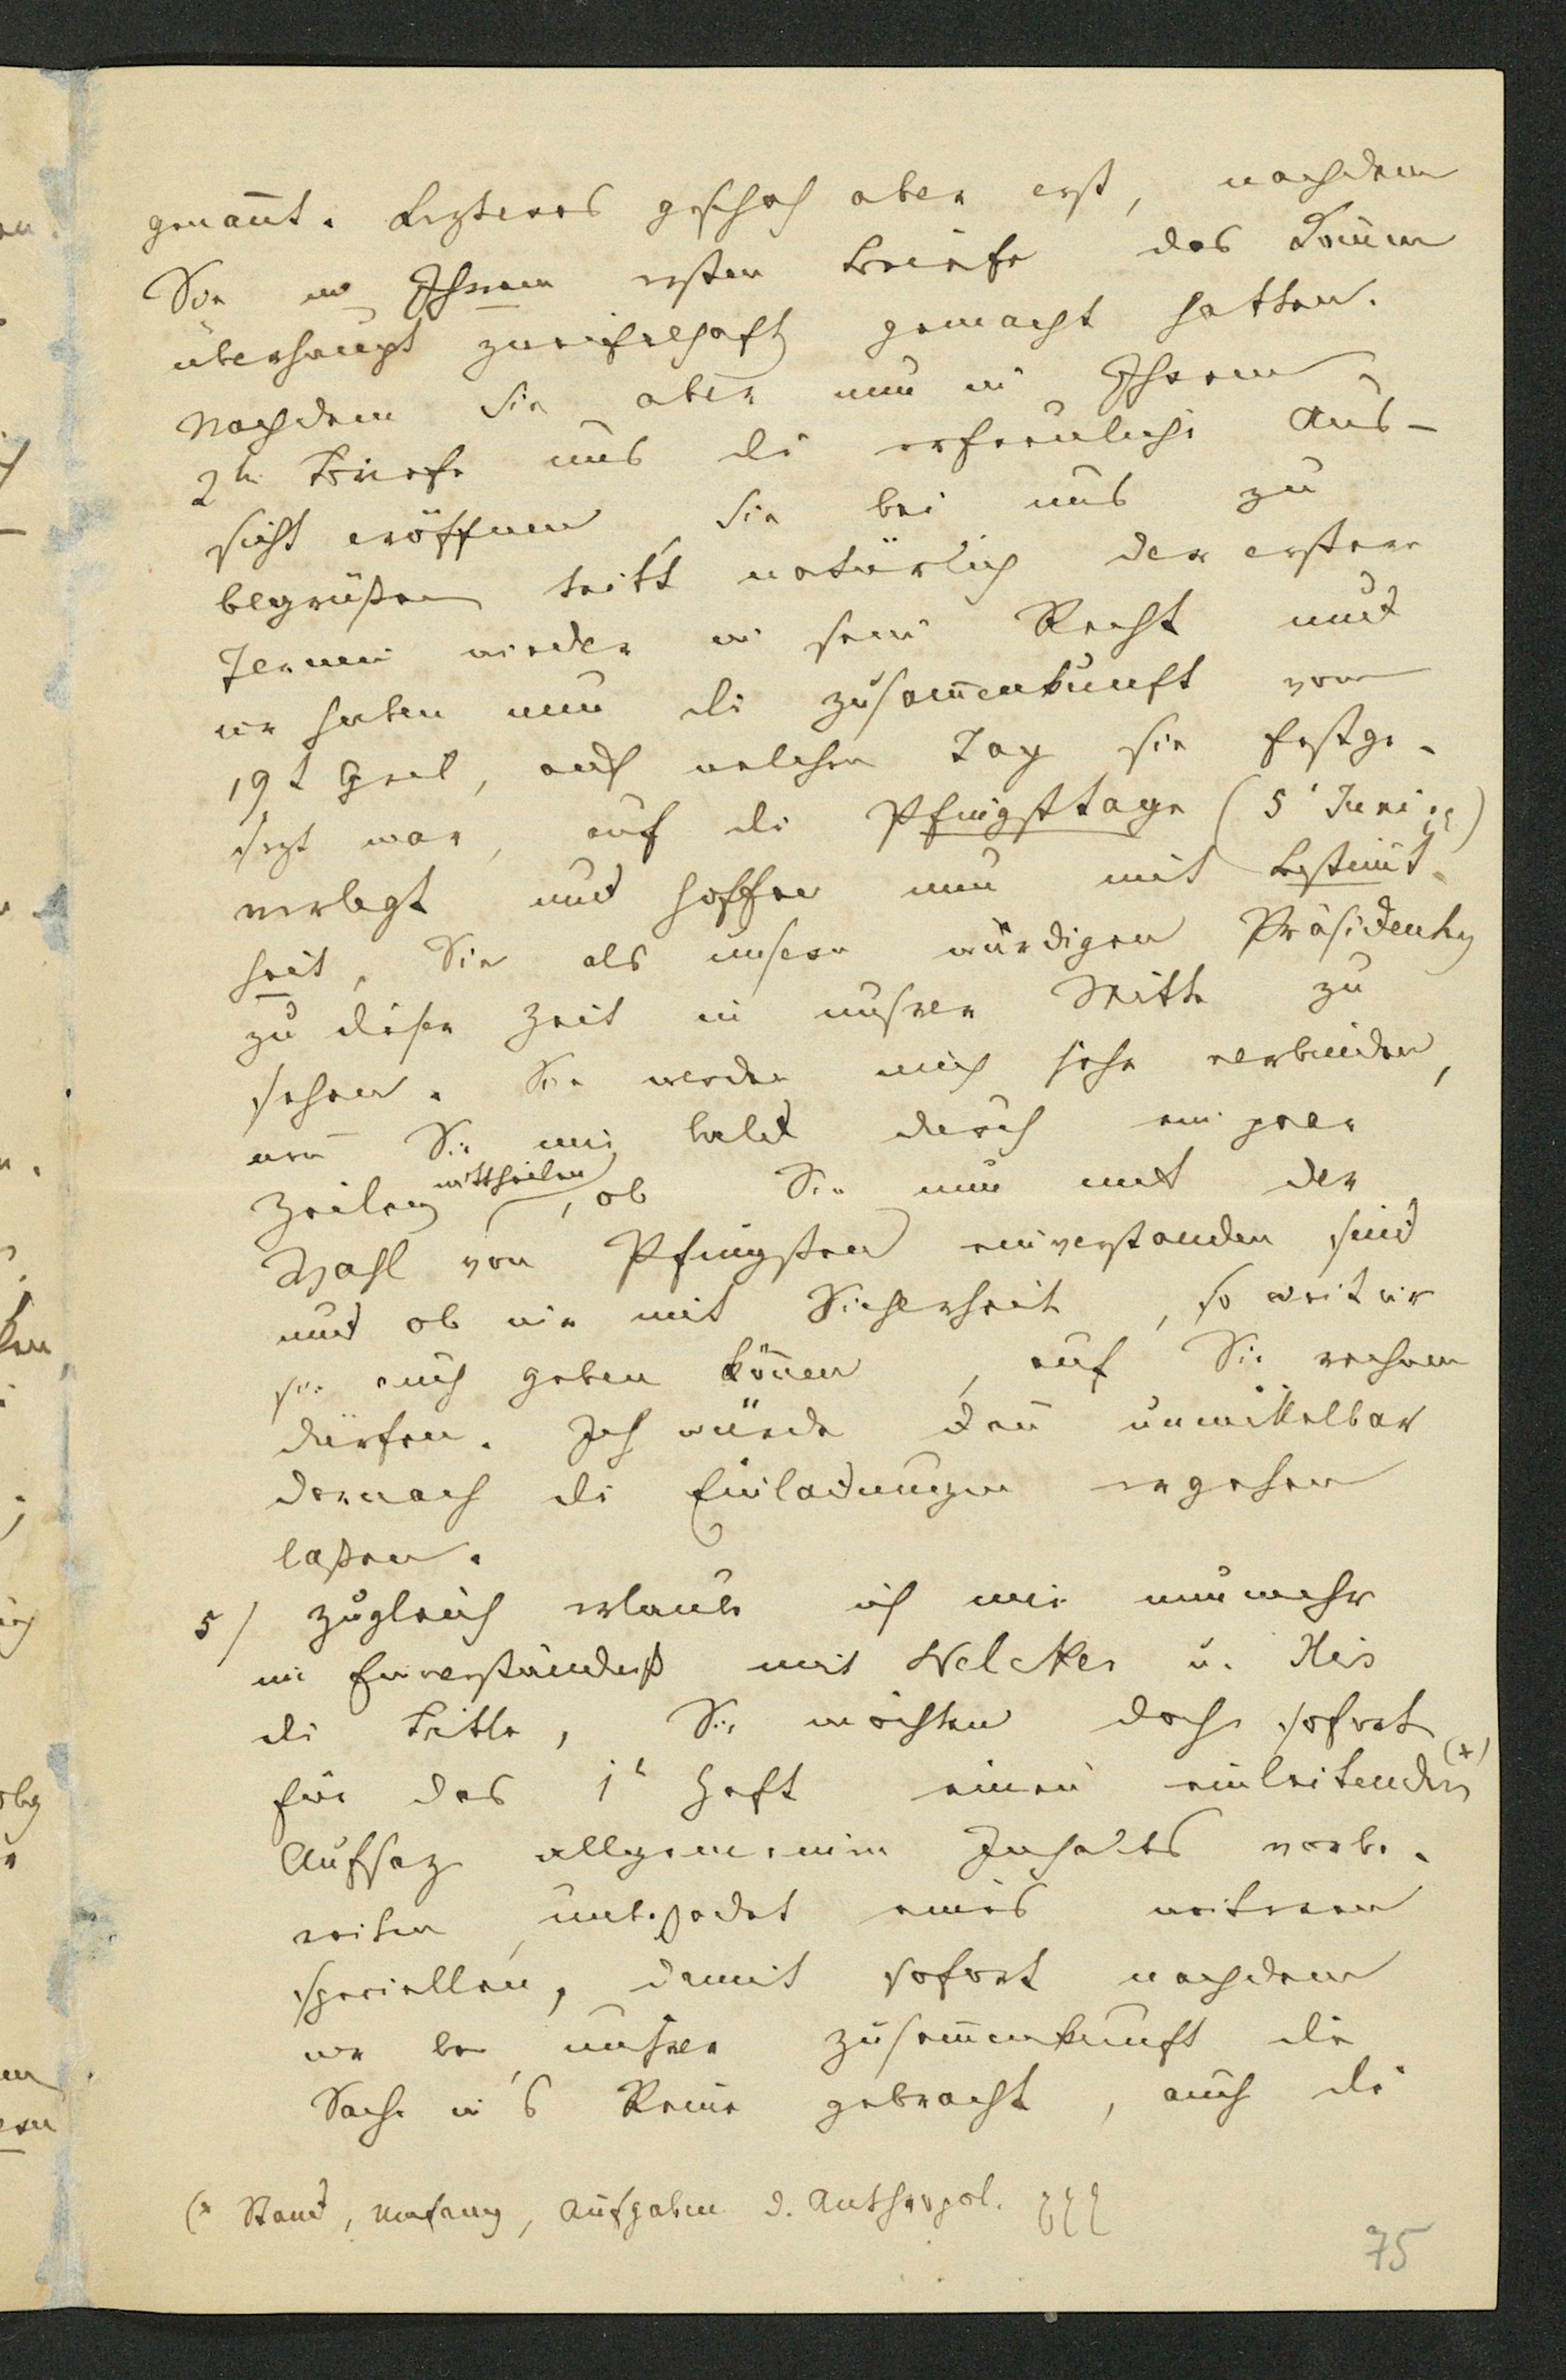 genan̅t. Lezteres geschah aber erst, nachdem
Sie in Ihrem ersten Briefe das Kom̅en
überhaupt zweifelhaft gemacht hatten.
Nachdem Sie aber nun in Ihrem
2tn Briefe uns die erfreuliche Aus-
sicht eröffnen, Sie bei uns zu
begrüßen tritt natürlich der erstere
Termin wieder in sein Recht und
wir haben nun die Zusam̅enkunft vom
19t April, auf welchen Tag sie festge-
sezt war, auf die Pfingsttage (5t Juni
verlegt und hoffen nun mit Bestim̅t-
heit, Sie als unsern würdigen Präsidenten
zu dieser Zeit in unsrer Mitte zu
sehen. Sie werden mich sehr verbinden,
wen̅ Sie mir bald durch ein paar
Zeilen mittheilen, ob Sie nun mit der
Wahl von Pfingsten einverstanden sind
und ob wir mit Sicherheit, so weit wir
sie auch geben kön̅en, auf Sie rechnen
dürfen. Ich würde dan̅ unmittelbar
darnach die Einladungen ergehen
laßen.
5/ Zugleich erlaube ich mir nunmehr
im Einverständniß mit Welcker u. His
die Bitte, Sie möchten doch sofort
für das 1t Heft einen einleitenden (*)
Aufsaz allgemeinen Inhalts vorbe-
reiten, unbeschadet eines weiteren
speciellen, damit sofort nachdem
wir bei unsrer Zusam̅enkunft die
Sache in's Reine gebracht, auch die
(* Stand, Umfang, Aufgaben d. Anthropol.
75